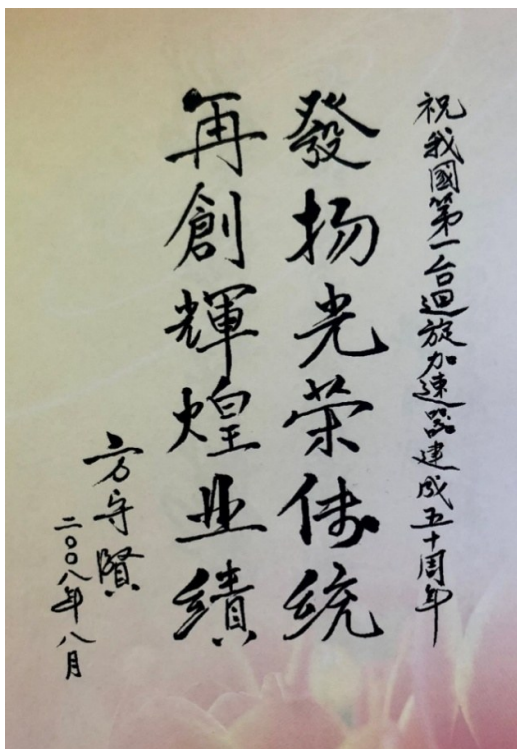 祝我國第一台迴旋加速器建成五十周年
發扬光荣传統
再創輝煌业績
方守賢
二〇〇八年八月